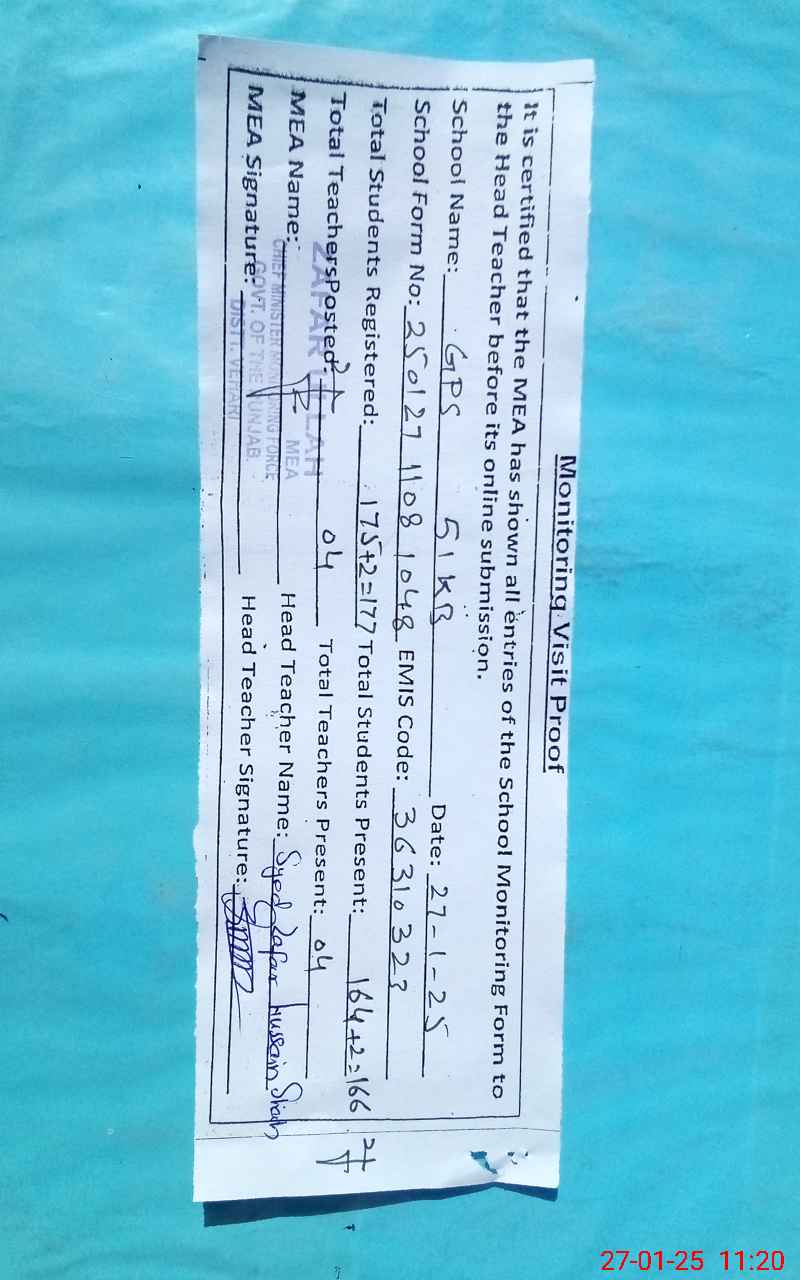 Monitoring Visit Proof
It is certified that the MEA has shown all entries of the School Monitoring Form to
the Head Teacher before its online submission.
School Name: GPS 51 KB Date: 27-1-25
School Form No: 250127 1108 1048 EMIS Code: 36310323
Total Students Registered: 175+2=177 Total Students Present: 164+2=166
Total TeachersPosted: 04 Total Teachers Present: 04
MEA Name: Head Teacher Name: Syed Zafar Hussain Shah
MEA Signature: Head Teacher Signature:
ZAFAR ULLAH
MEA
CHIEF MINISTER MONITORING FORCE
GOVT. OF THE PUNJAB
DISTT. VEHARI
27-01-25 11:20